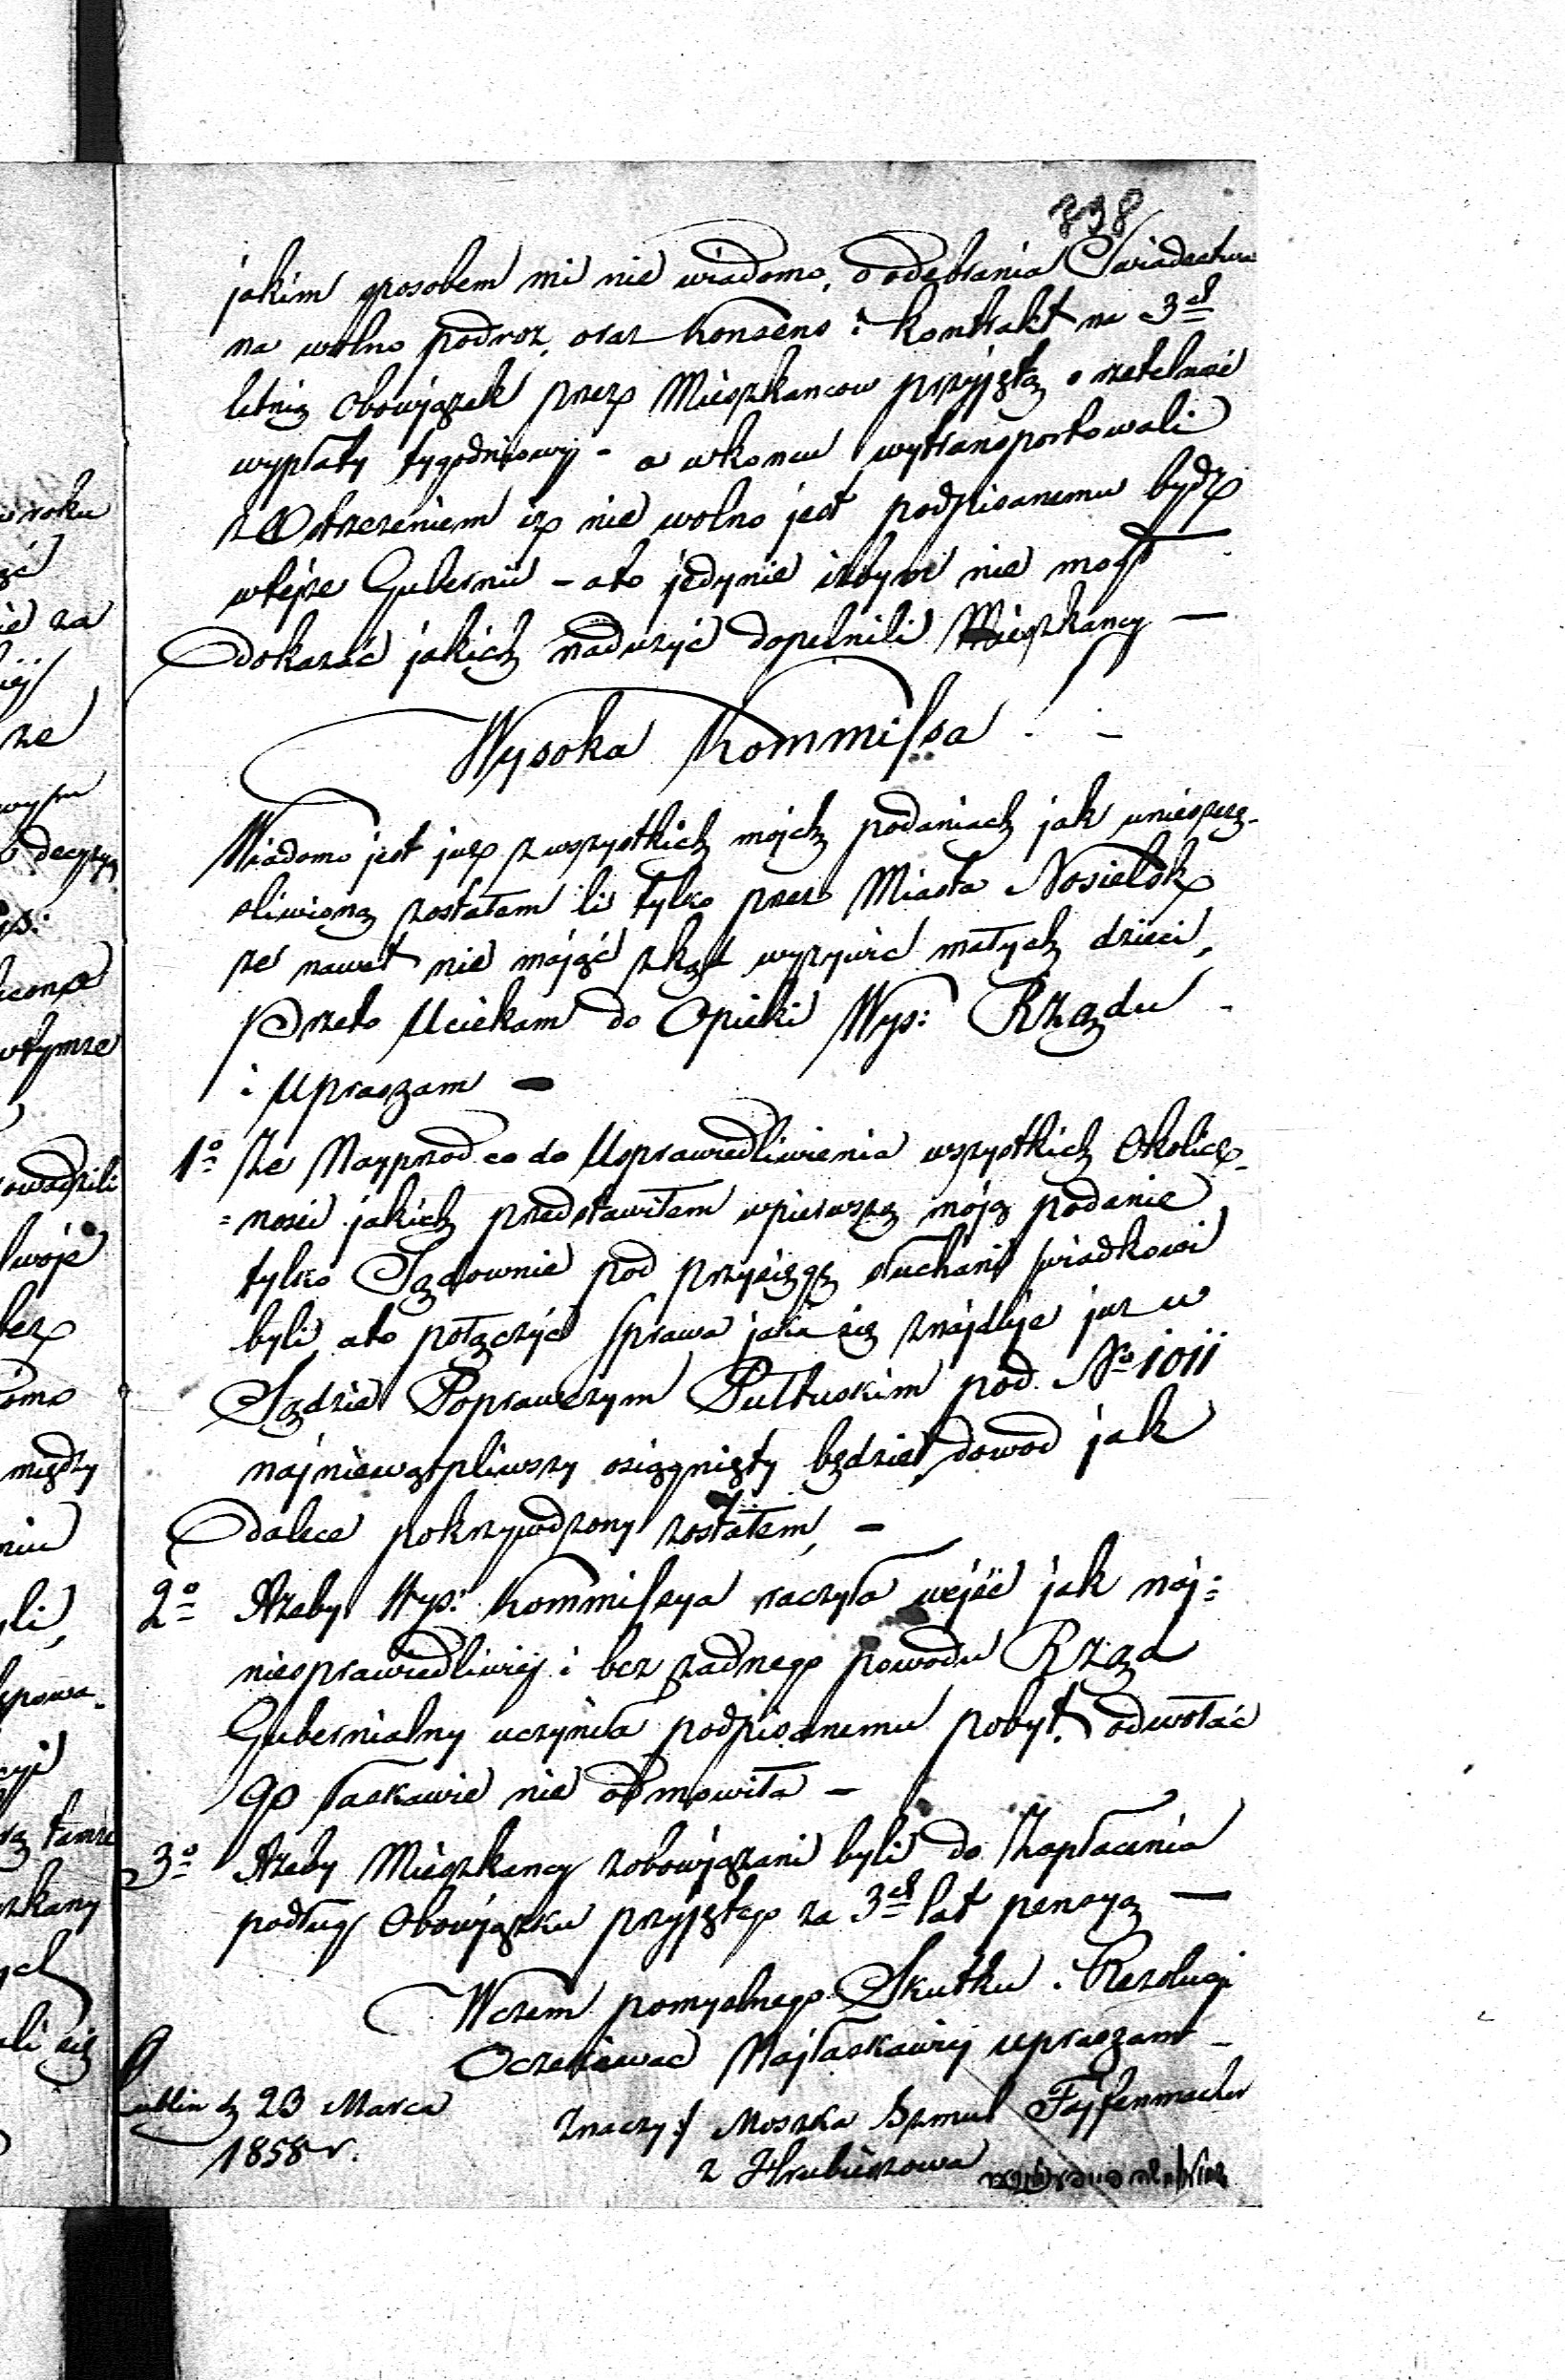 398
jakim sposobem mi nie wiadomo, o odebrania Swiadectwa
na wolno podroz, oraz Konsens i Kontrakt na 3ch
letnią Obowjązek przez Mieszkancow przyjętą o rzetelność
wypłaty tygodniowy - a wkoncu wytransportowali
z Ostrzeżeniem iż nie wolno jest podpisanemu bydz
wtejze Gubernii - ato jedynie izbym nie mogł
dokazać jakich naduzyć dopełnili Mieszkancy —
Wysoka Kommissa . -
Wiadomo jest już z wszystkich mojch podaniach jak unieszczę-
sliwioną zostałem li tylko przez Miasta Nosielsk
ze nawet nie mająć zkąt wyzywic małych dzieci,
Przeto Uciekam do Opieki Wys: Rządu -
i Upraszam -
1o Ze Nayprzod co do Usprawiedliwienia wszystkich Okolicz-
=nosci jakich przedstawiłem wpierwszą moją podanie
tylko Sądownie pod przysięgę słuchani swiadkowi
byli ato połączyć Sprawa jaka się znajduje juz w
Sądzie Poprawczym Pultuskim pod No 1011
najniewątpliwszy osiągnięty będzie dowod jak
dalece pokrzywdzony zostałem, -
2o Azeby Wys: Kommissya raczyła wejść jak náj=
niesprawiedliwiej i bez zadnego powodu Rząd
Gubernialny uczynila podpisanemu pobyt, odwołać
go łaskawie nie odmowiła -
3o Azeby Mieszkancy zobowjązani byli do Zapłacenia
podług Obowjązku przyjętego za 3ch lat pensyą —
Wczem pomyslnego Skutku i Rezolucji
Oczekiwac Najłaskawiej upraszam -
Lublin d 23 Marca
1858 r.
Znaczy:/ Moszka Szmul Fajfenmacher
z Hrubieszowa
w roku
ie za
ze
decyzyą
wtymze
owadzili
swoje
między
li,
tamze
szkany
ych
li się